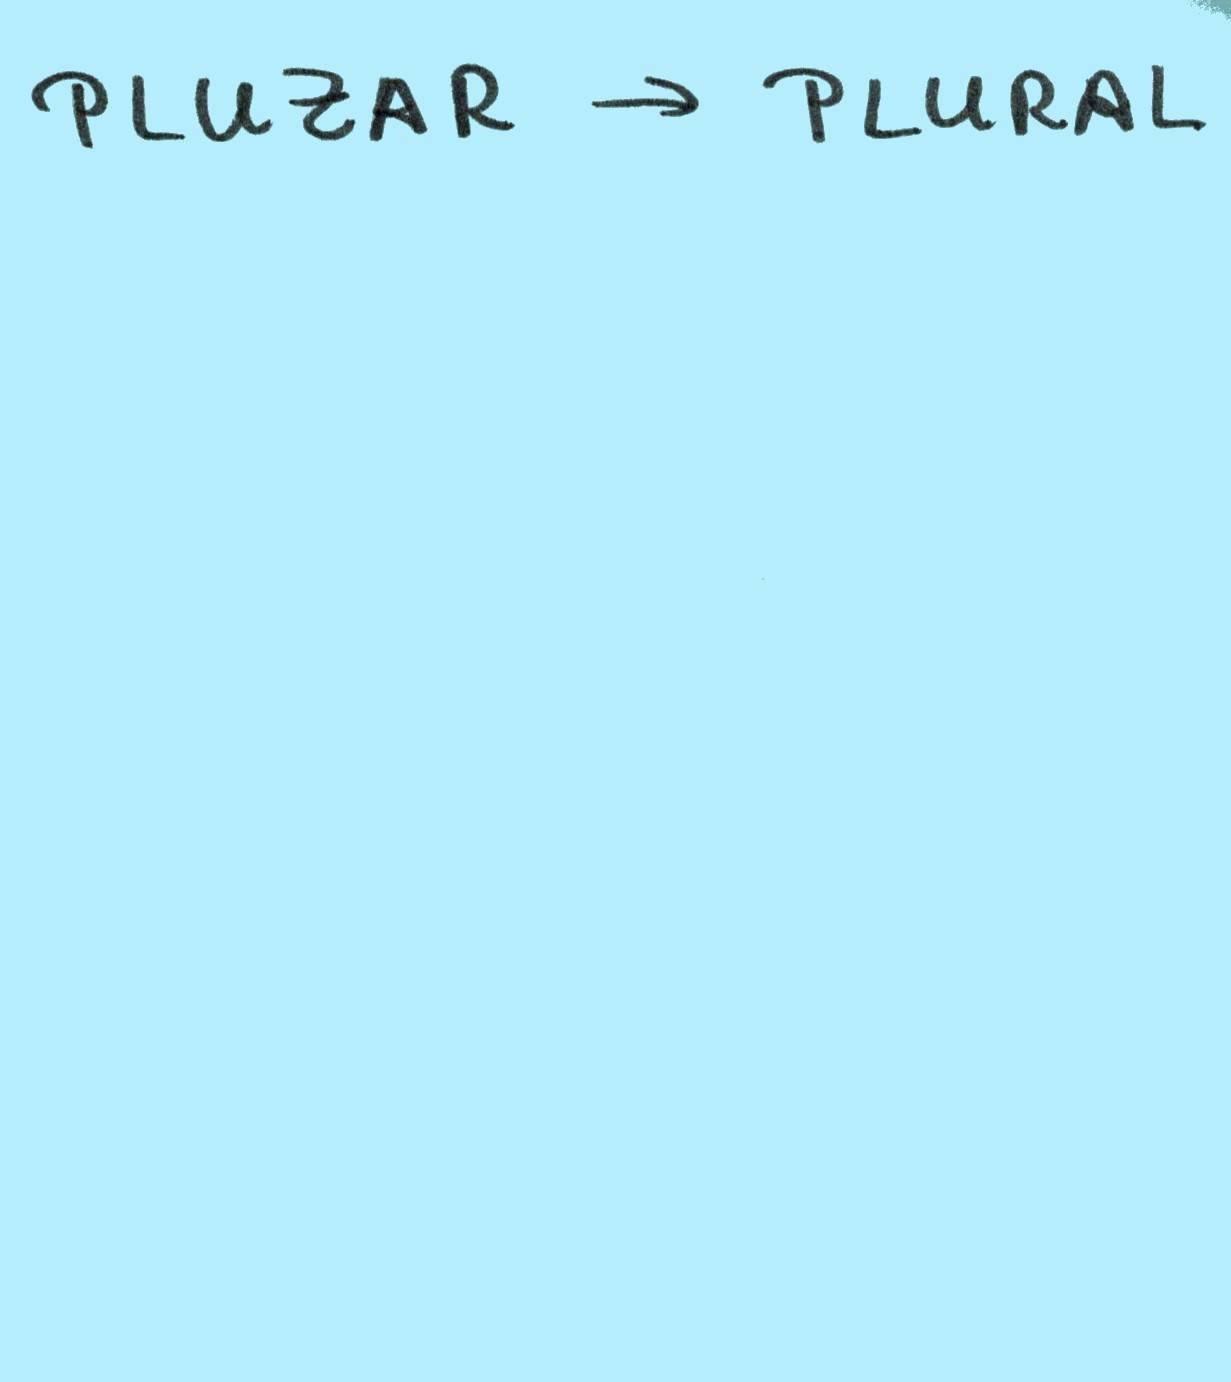 PLUZAR → PLURAL